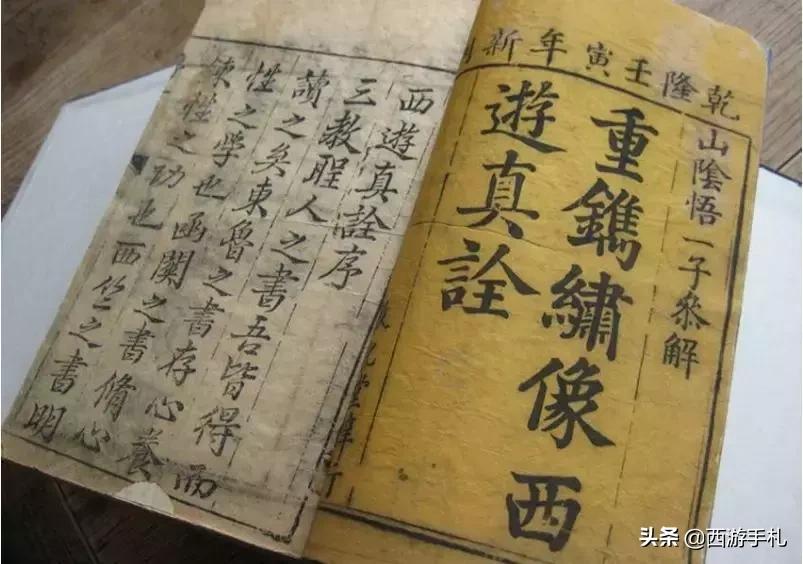 乾隆壬寅年新
山陰悟一子叅解
重鐫繡像西
遊真詮
西遊真詮序
三教聖人之書吾皆得而
讀之矣東魯之書存心養
性之學也函關之書脩心
煉性之功也西竺之書明
头条 @西游手札